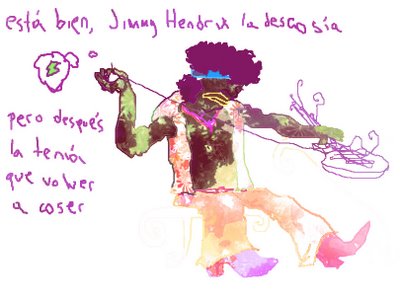 está bien, Jimmy Hendrix la descosía
pero después
la tenía
que volver
a coser